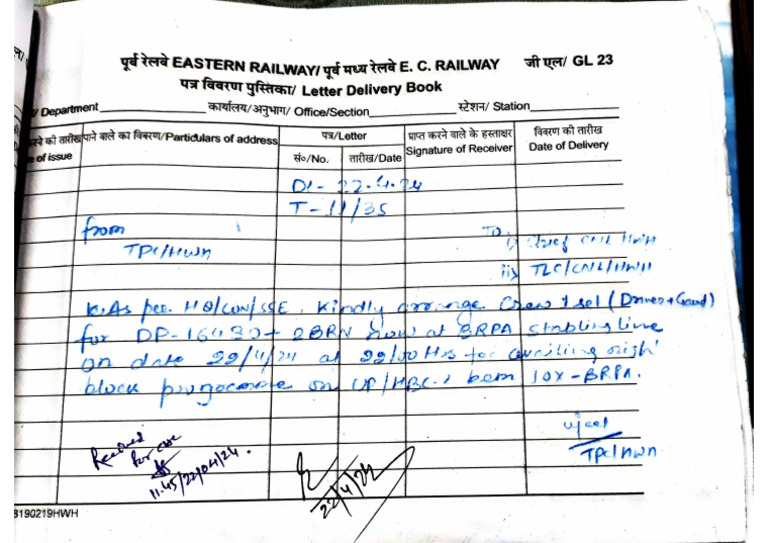 पूर्व रेलवे EASTERN RAILWAY/ पूर्व मध्य रेलवे E. C. RAILWAY जी एल/ GL 23
पत्र विवरण पुस्तिका/ Letter Delivery Book
/ Department कार्यालय/अनुभाग/ Office/Section स्टेशन/ Station
करने की तारीख पाने वाले का विवरण/Particulars of address पत्र/Letter प्राप्त करने वाले के हस्ताक्षर विवरण की तारीख
of issue सं०/No. तारीख/Date Signature of Receiver Date of Delivery
Dt- 22.4.24
T-11/35
from To
TPC/HWH i) Chief CNL HWH
ii) TLC/CNL/HWH
As per HQ/CON/SSE, Kindly arrange Crew 1 set (Driver + Guard)
for DP- + 2BRN now at BRPA Stabling line
on date 22/4/24 at 22/00 Hrs for availing night
block programme on UP/HBC. 10X-BRPA.
Received
for CNL
11.45/22/04/24.
22/4/24
TPC/HWH
3190219HWH